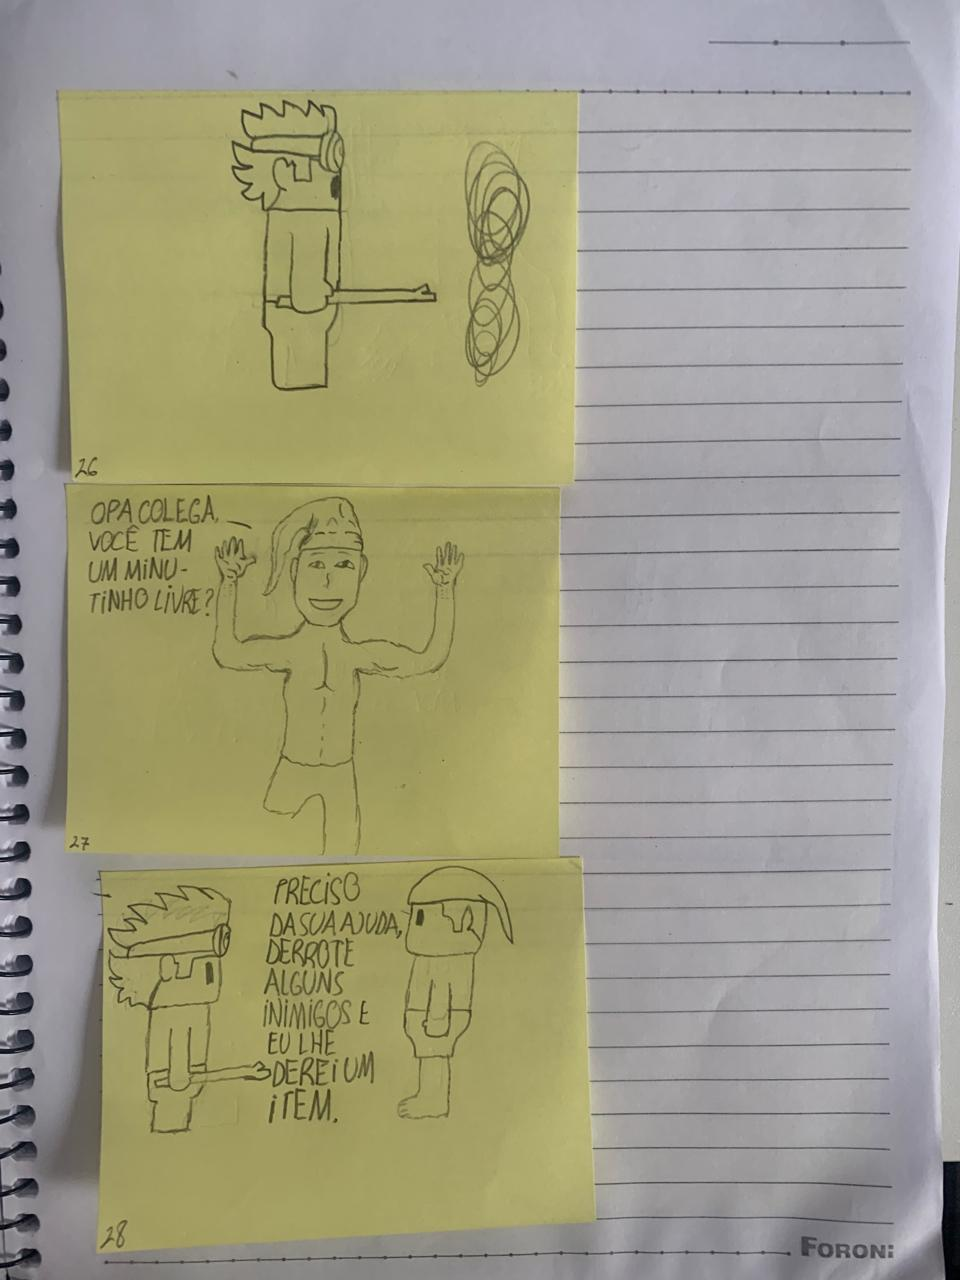 26
OPA COLEGA,
VOCÊ TEM
UM MINU-
TINHO LIVRE?
27
PRECISO
DA SUA AJUDA,
DERROTE
ALGUNS
INIMIGOS E
EU LHE
DEREI UM
ITEM.
28
FORONI